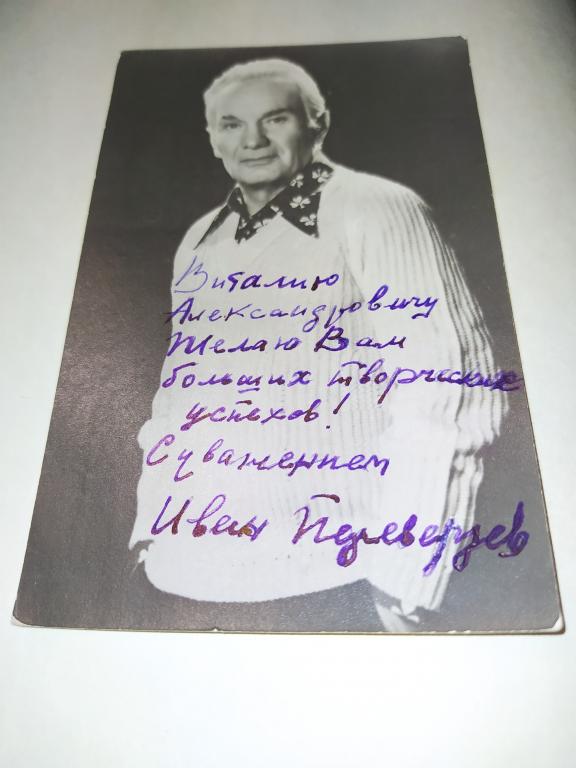 Виталию
Александровичу
Желаю Вам
больших творческих
успехов!
С уважением
Иван Переверзев